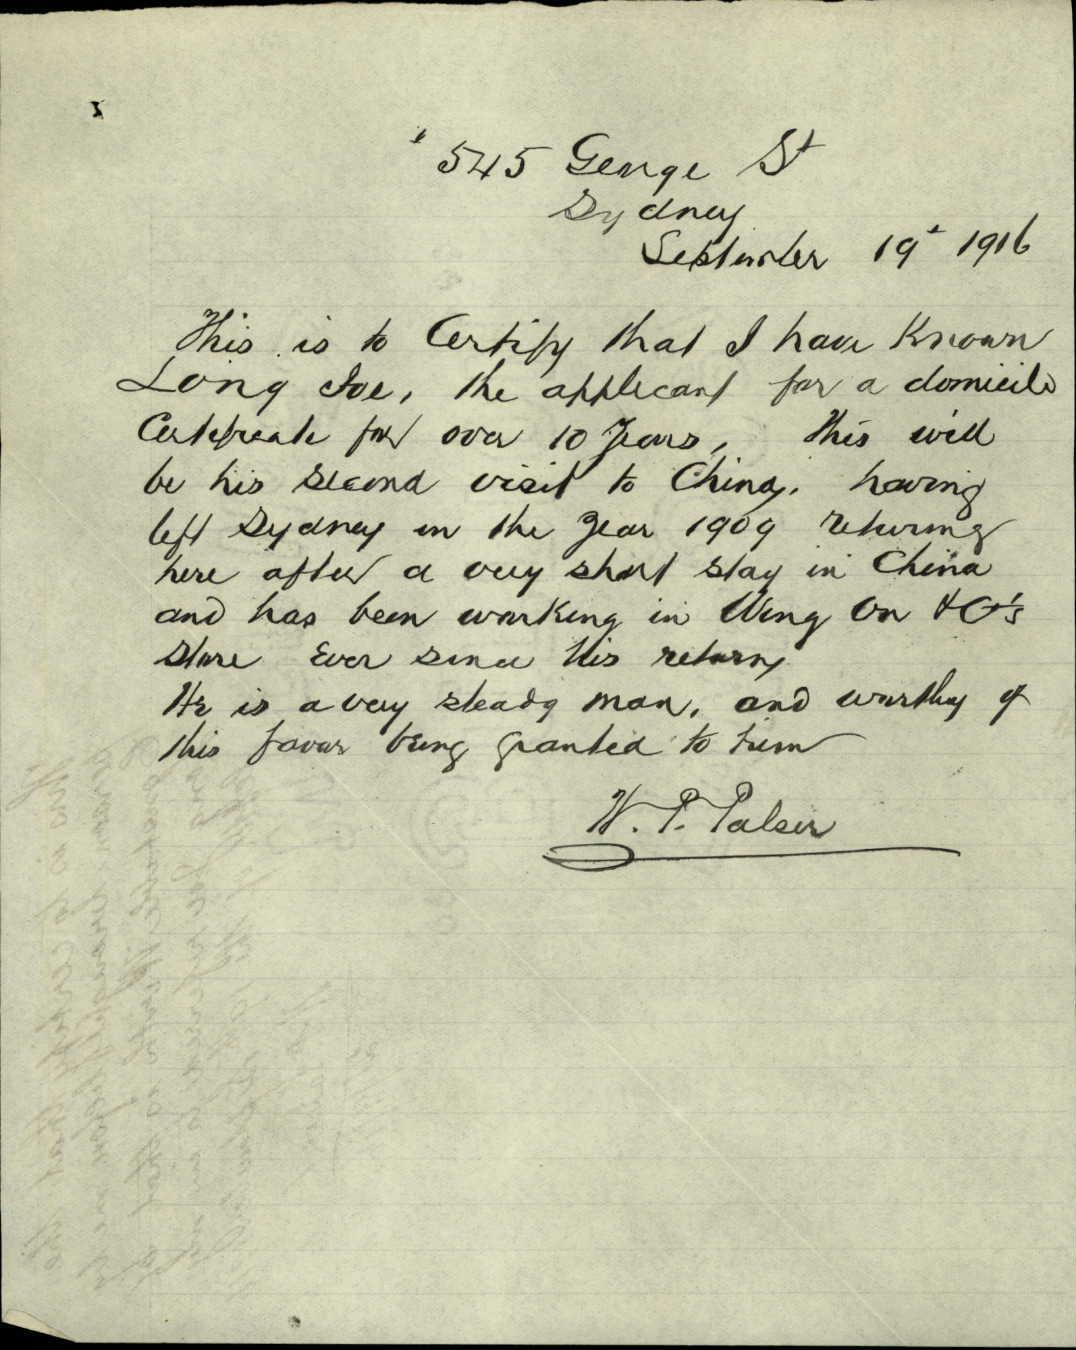 545 George St
Sydney
September 19t 1916
This is to Certify that I have Known
Long Joe, the applicant for a domicile
Certificate for over 10 Years, This will
be his second visit to China. having
left Sydney in the Year 1909 returing
here after a very short stay in China
and has been working in Wing On & Co's
Store Ever since his return,
He is a very steady man, and worthy of
this favor being granted to him
W. P. Palser